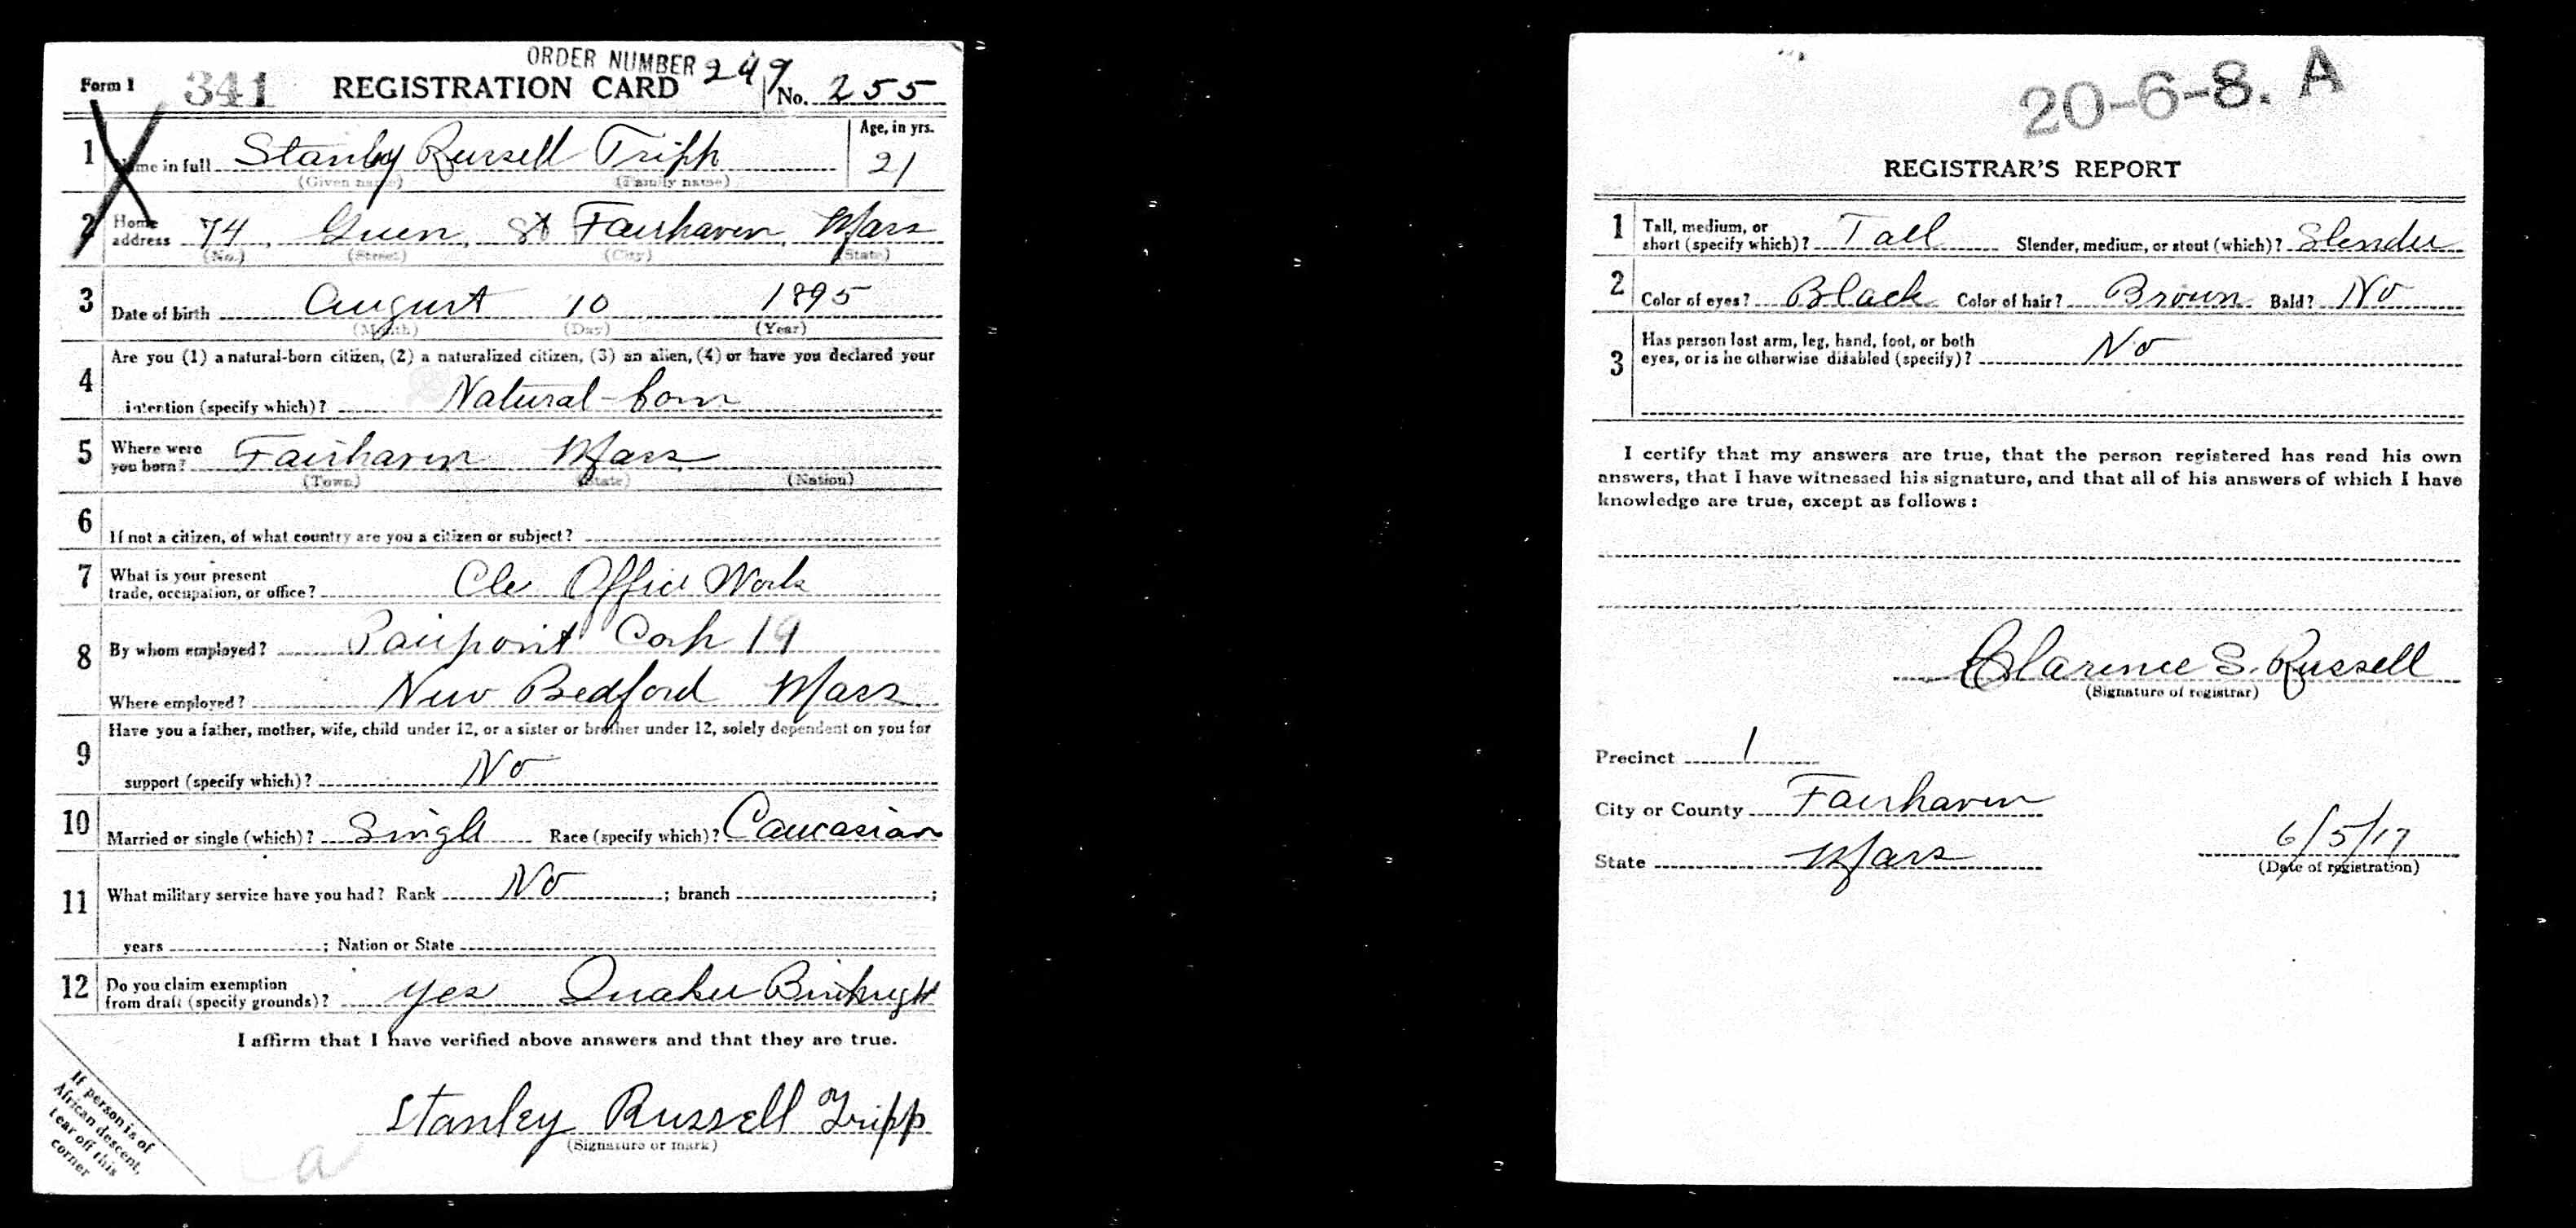 ORDER NUMBER 249
Form 1 341 REGISTRATION CARD No. 255
1 Name in full Stanley Russell Tripp Age, in yrs. 21
(Given name) (Family name)
2 Home address 74, Green, St Fairhaven, Mass
(No.) (Street) (City) (State)
3 Date of birth August 10 1895
(Month) (Day) (Year)
4 Are you (1) a natural-born citizen, (2) a naturalized citizen, (3) an alien, (4) or have you declared your
intention (specify which)? Natural-born
5 Where were you born? Fairhaven Mass
(Town) (State) (Nation)
6 If not a citizen, of what country are you a citizen or subject?
7 What is your present
trade, occupation, or office? Office Work
8 By whom employed? Pairpoint Corp 19
Where employed? New Bedford Mass
9 Have you a father, mother, wife, child under 12, or a sister or brother under 12, solely dependent on you for
support (specify which)? No
10 Married or single (which)? Single Race (specify which)? Caucasian
11 What military service have you had? Rank No ; branch ;
years ; Nation or State
12 Do you claim exemption
from draft (specify grounds)? yes Quaker Birthright
I affirm that I have verified above answers and that they are true.
Stanley Russell Tripp
(Signature or mark)
If person is of
African descent,
tear off this
corner
20-6-8. A
REGISTRAR'S REPORT
1 Tall, medium, or
short (specify which)? Tall Slender, medium, or stout (which)? Slender
2 Color of eyes? Black Color of hair? Brown Bald? No
3 Has person lost arm, leg, hand, foot, or both
eyes, or is he otherwise disabled (specify)? No
I certify that my answers are true, that the person registered has read his own
answers, that I have witnessed his signature, and that all of his answers of which I have
knowledge are true, except as follows:
Clarence S. Russell
(Signature of registrar)
Precinct 1
City or County Fairhaven
State Mass 6/5/17
(Date of registration)